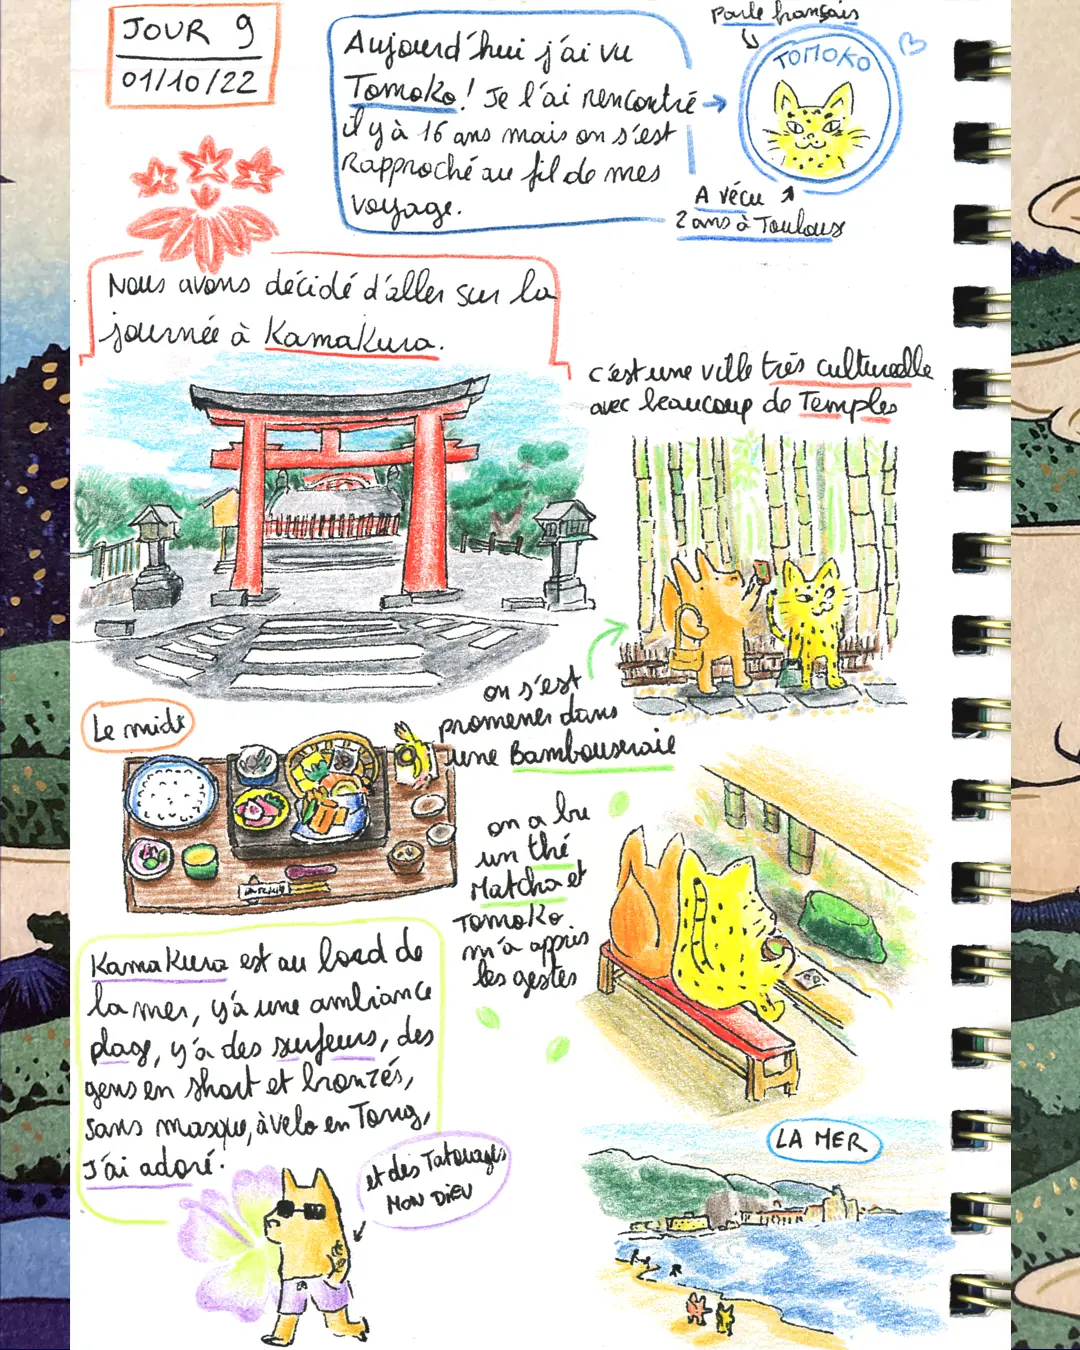 JOUR 9
01/10/22
Aujourd'hui j'ai vu
Tomoko! Je l'ai rencontré
il y à 16 ans mais on s'est
Rapproché au fil de mes
voyage.
Parle français
TOMOKO
A vécu
2 ans à Toulouse
Nous avons décidé d'aller sur la
journée à Kamakura.
c'est une ville très culturelle
avec beaucoup de Temples
on s'est
promener dans
une Bambouseraie
Le midi
on a bu
un thé
Matcha et
Tomoko
m'a appris
les gestes
Kamakura est au bord de
la mer, y'a une ambiance
plage, y'a des surfeurs, des
gens en short et bronzés,
sans masque, à vélo en Tong,
J'ai adoré.
et des Tatouages
MON DIEU
LA MER